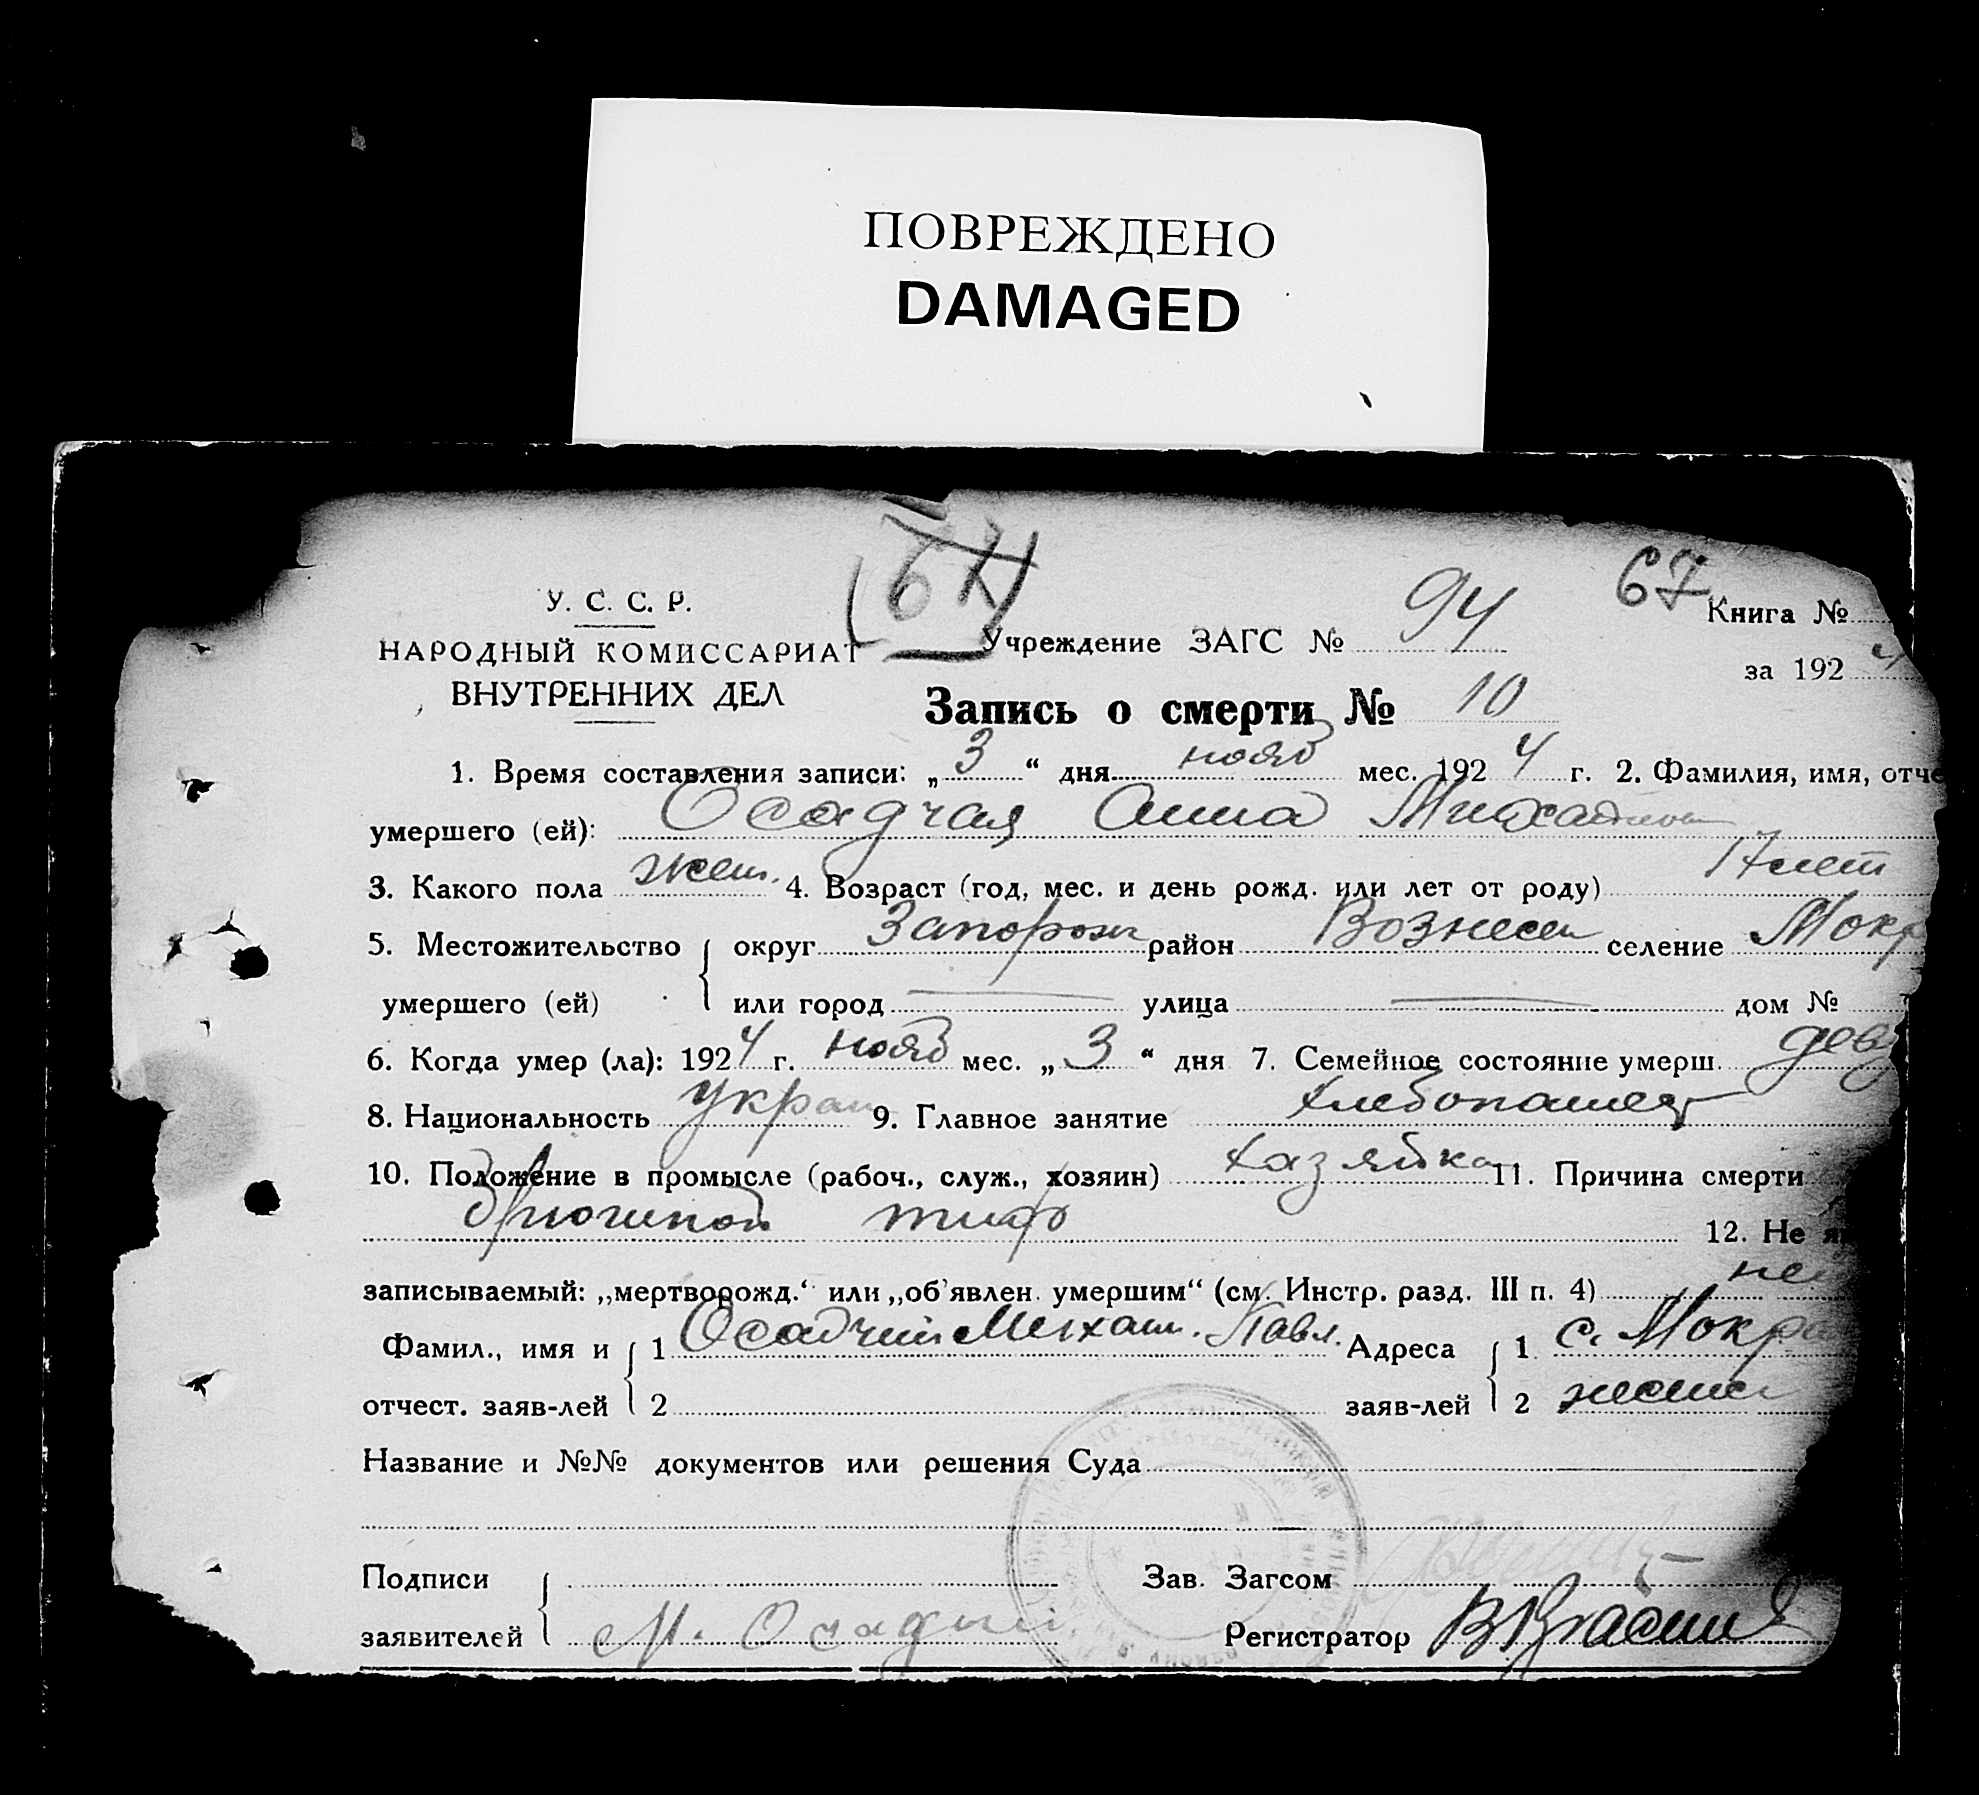 ПОВРЕЖДЕНО
DAMAGED
67
67
У. С. С. Р.
НАРОДНЫЙ КОМИССАРИАТ
ВНУТРЕННИХ ДЕЛ
Учреждение ЗАГС № 94
Книга №
за 192 4
Запись о смерти № 10
1. Время составления записи: „ 3 “ дня нояб мес. 192 4 г. 2. Фамилия, имя, отче
умершего (ей): Осадчая Анна
3. Какого пола жен. 4. Возраст (год, мес. и день рожд. или лет от роду) 17 лет
5. Местожительство округ Запорож район Вознесен селение Мокр
умершего (ей) или город — улица — дом №
6. Когда умер (ла): 192 4 г. нояб мес. „ 3 “ дня 7. Семейное состояние умерш. дев
8. Национальность укра 9. Главное занятие хлебопашец
10. Положение в промысле (рабоч., служ., хозяин) хазяйка 11. Причина смерти
Брюшной тиф 12. Не я
записываемый: „мертворожд.“ или „об'явлен. умершим“ (см. Инстр. разд. III п. 4) не
Фамил., имя и 1 Осадчий Михаил. Павл. Адреса 1 с. Мокра
отчест. заяв-лей 2 заяв-лей 2
Название и №№ документов или решения Суда
Подписи Зав. Загсом
заявителей М. Осадчий Регистратор